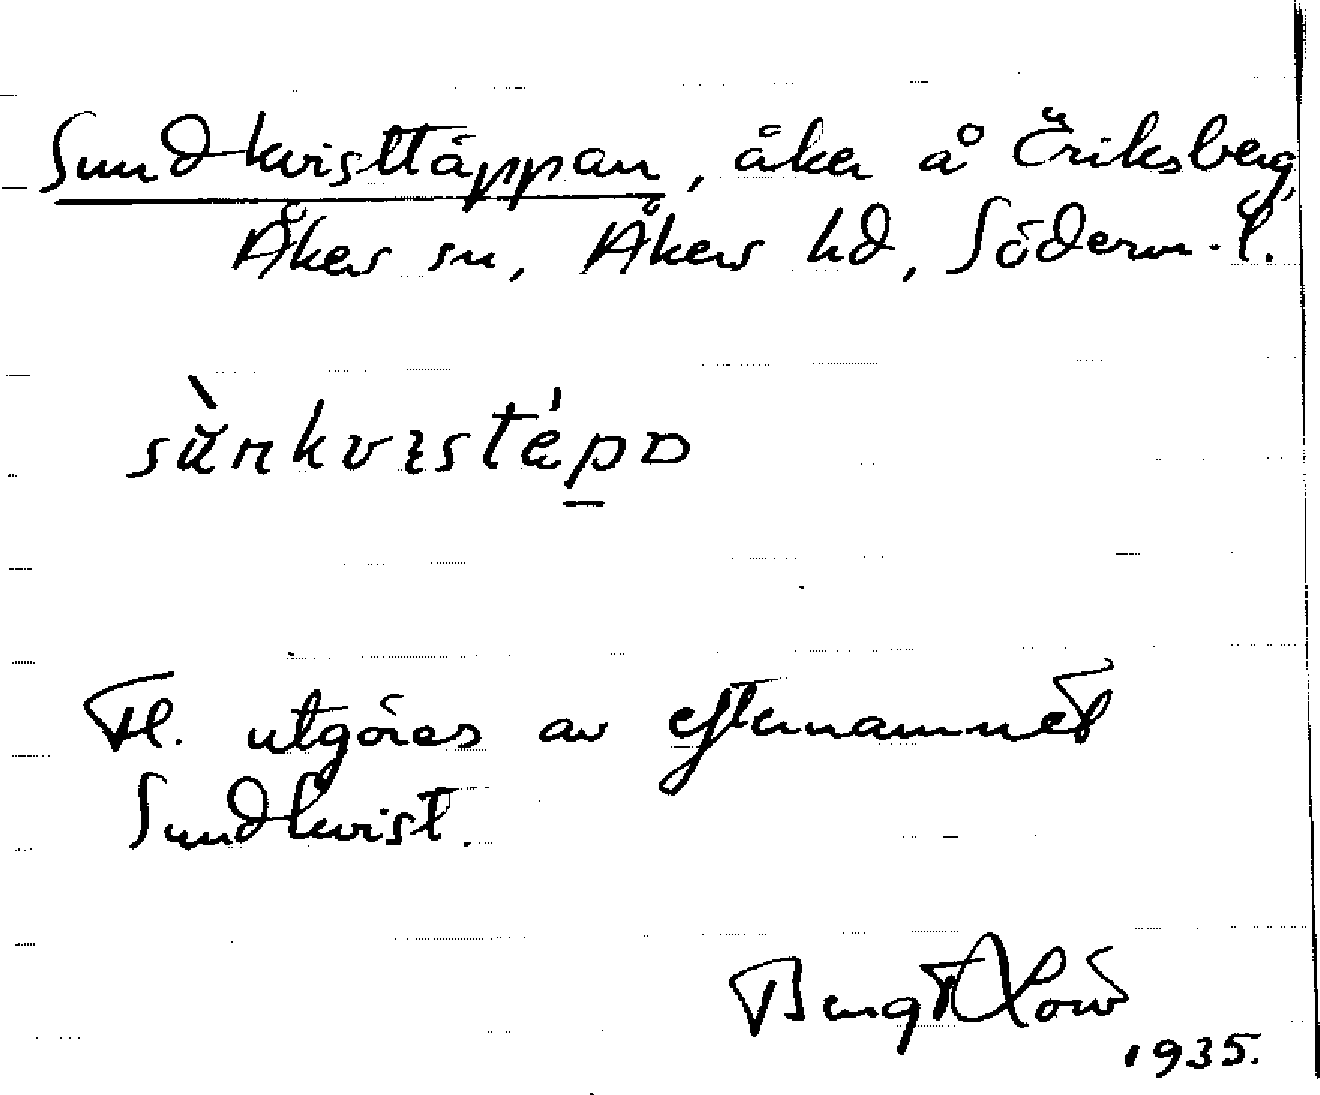 Sundkvisttäppan, åker å Eriksberg,
Åkers sn, Åkers hd, Söderm. l.
sùnkvɪstép
Fl. utgöres av efternamnet
Sundkvist.
Bengt
1935.